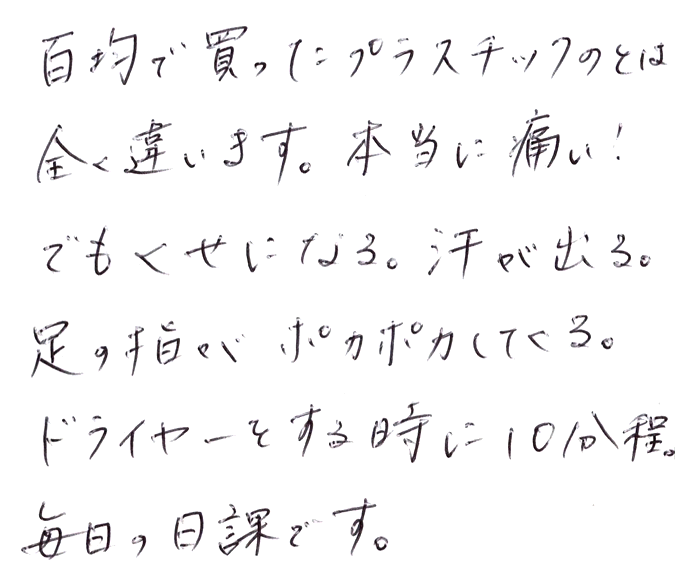 百均で買ったプラスチックのとは
全く違います。本当に痛い!
でもくせになる。汗が出る。
足の指がポカポカしてくる。
ドライヤーをする時に10分程。
毎日の日課です。